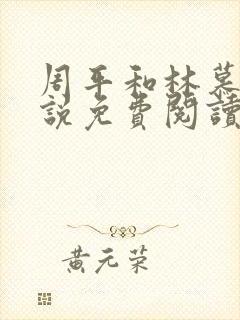 周平和林慕
說免費閱讀
黃元荣